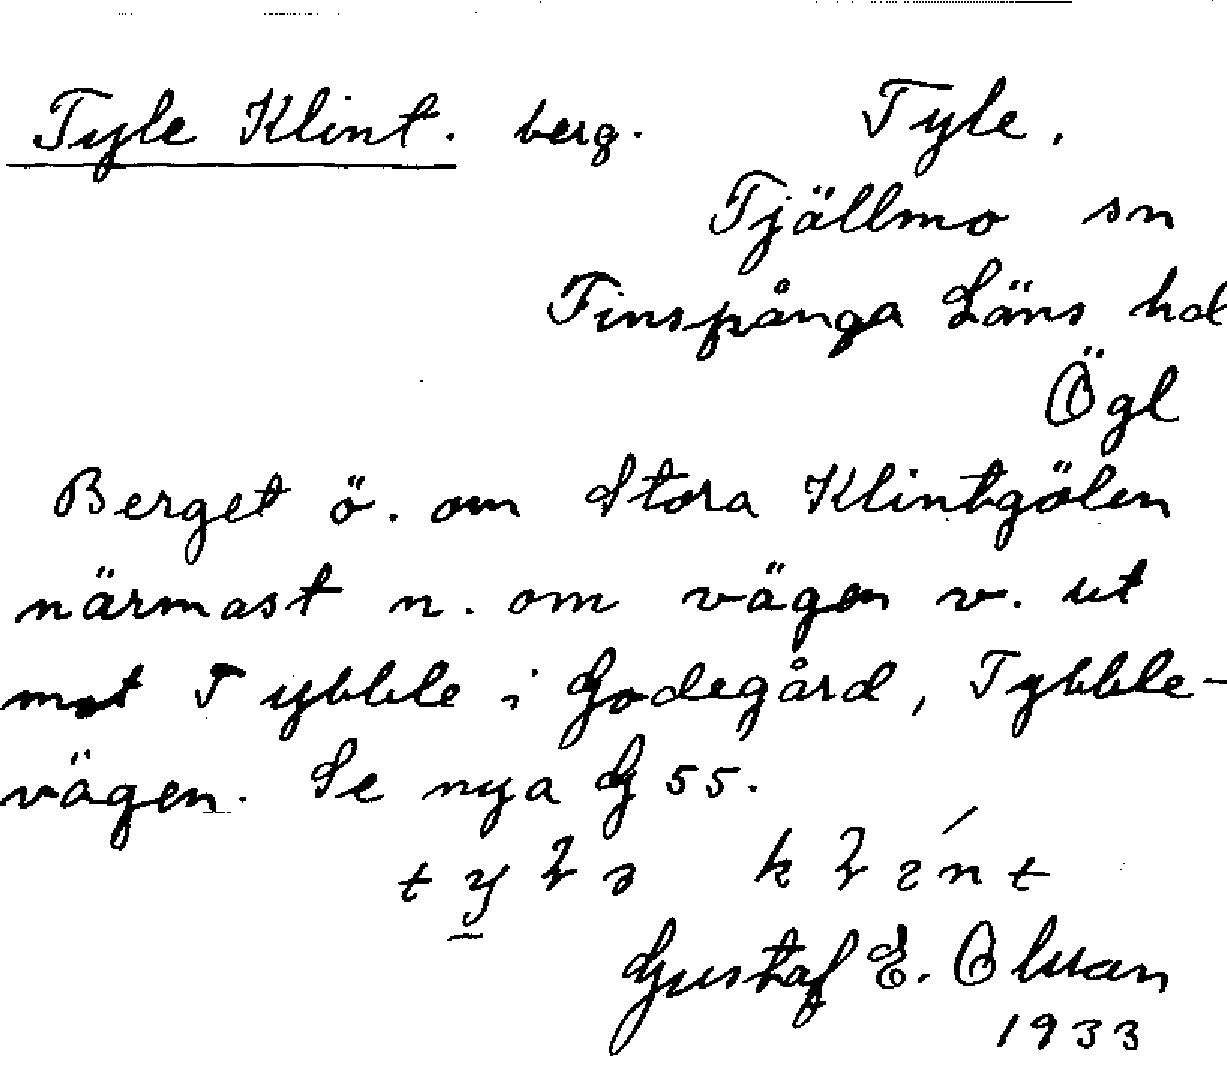 Tyle Klint. berg. Tyle.
Tjällmo sn
Finspånga Läns hd
Ögl
Berget ö. om Stora Klintgölen
närmast n. om vägen v. ut
mot Tybble i Godegård, Tybble-
vägen. Se nya G 55.
Gustaf E.
1933